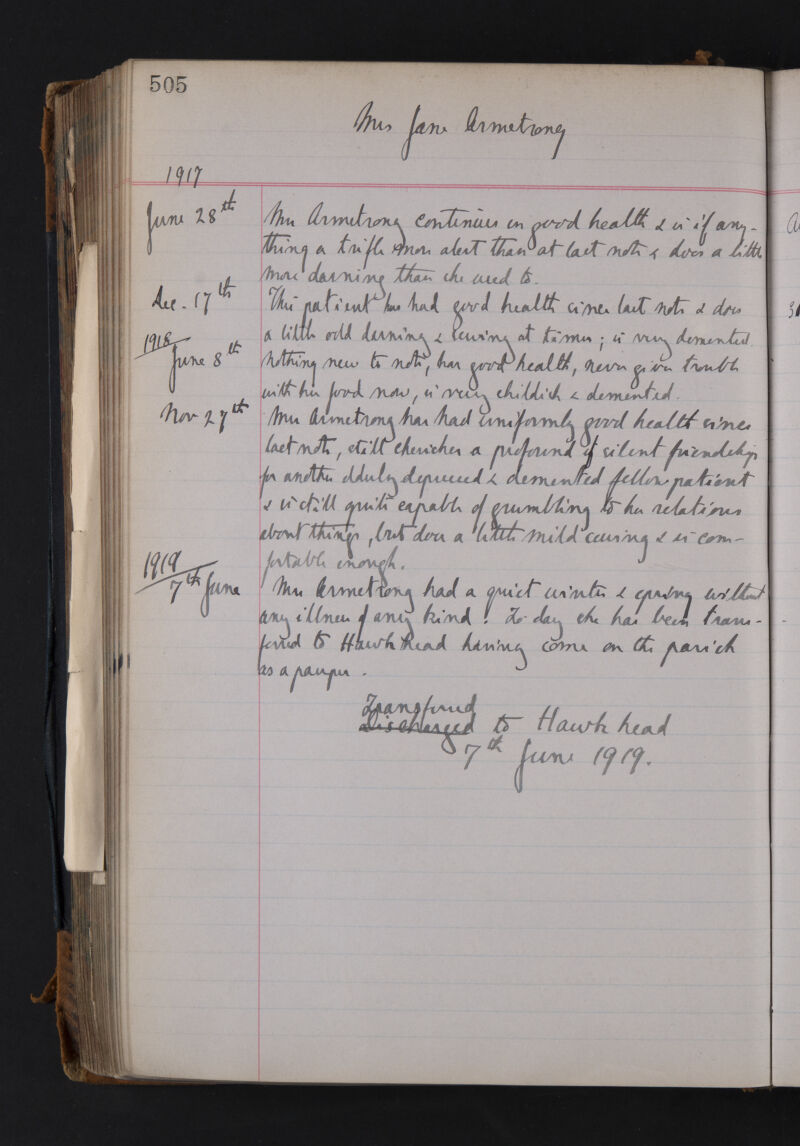 505
Mrs Jane Armstrong
1917
June 28th Mrs Armstrong continues in good health & is if any-
thing a trifle more alert than at last note & does a little
more darning than she used to.
Dec. 17th This patient has had good health since last note & does
a little odd darning & sewing at times; is very demented.
1918
June 8th Nothing new to note, has good health, never gives trouble
with her food now, is very childish & demented.
Nov 27th Mrs Armstrong has had uniformly good health since
last note, still cherishes a profound & silent friendship
for another elderly depressed & demented fellow patient
& is still quite capable of grumbling to her relations
about things, but does a little mild sewing & is com-
fortable enough.
1919
7th June Mrs Armstrong had a quiet winter & spring without
any illness of any kind. To day she has been trans-
ferred to Hawkhead having come on the parish
as a pauper.
Transferred
Discharged to Hawkhead
7th June 1919.